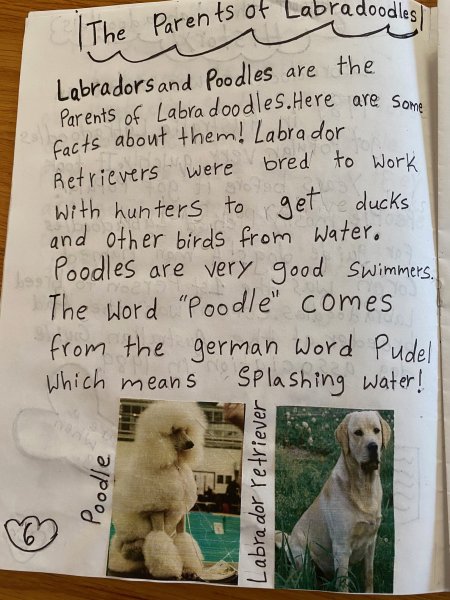 The Parents of Labradoodles
Labradors and Poodles are the
Parents of Labradoodles. Here are some
facts about them! Labrador
Retrievers were bred to work
with hunters to get ducks
and other birds from water.
Poodles are very good swimmers.
The word "Poodle" comes
from the german word Pudel
which means splashing water!
Poodle
Labrador retriever
6